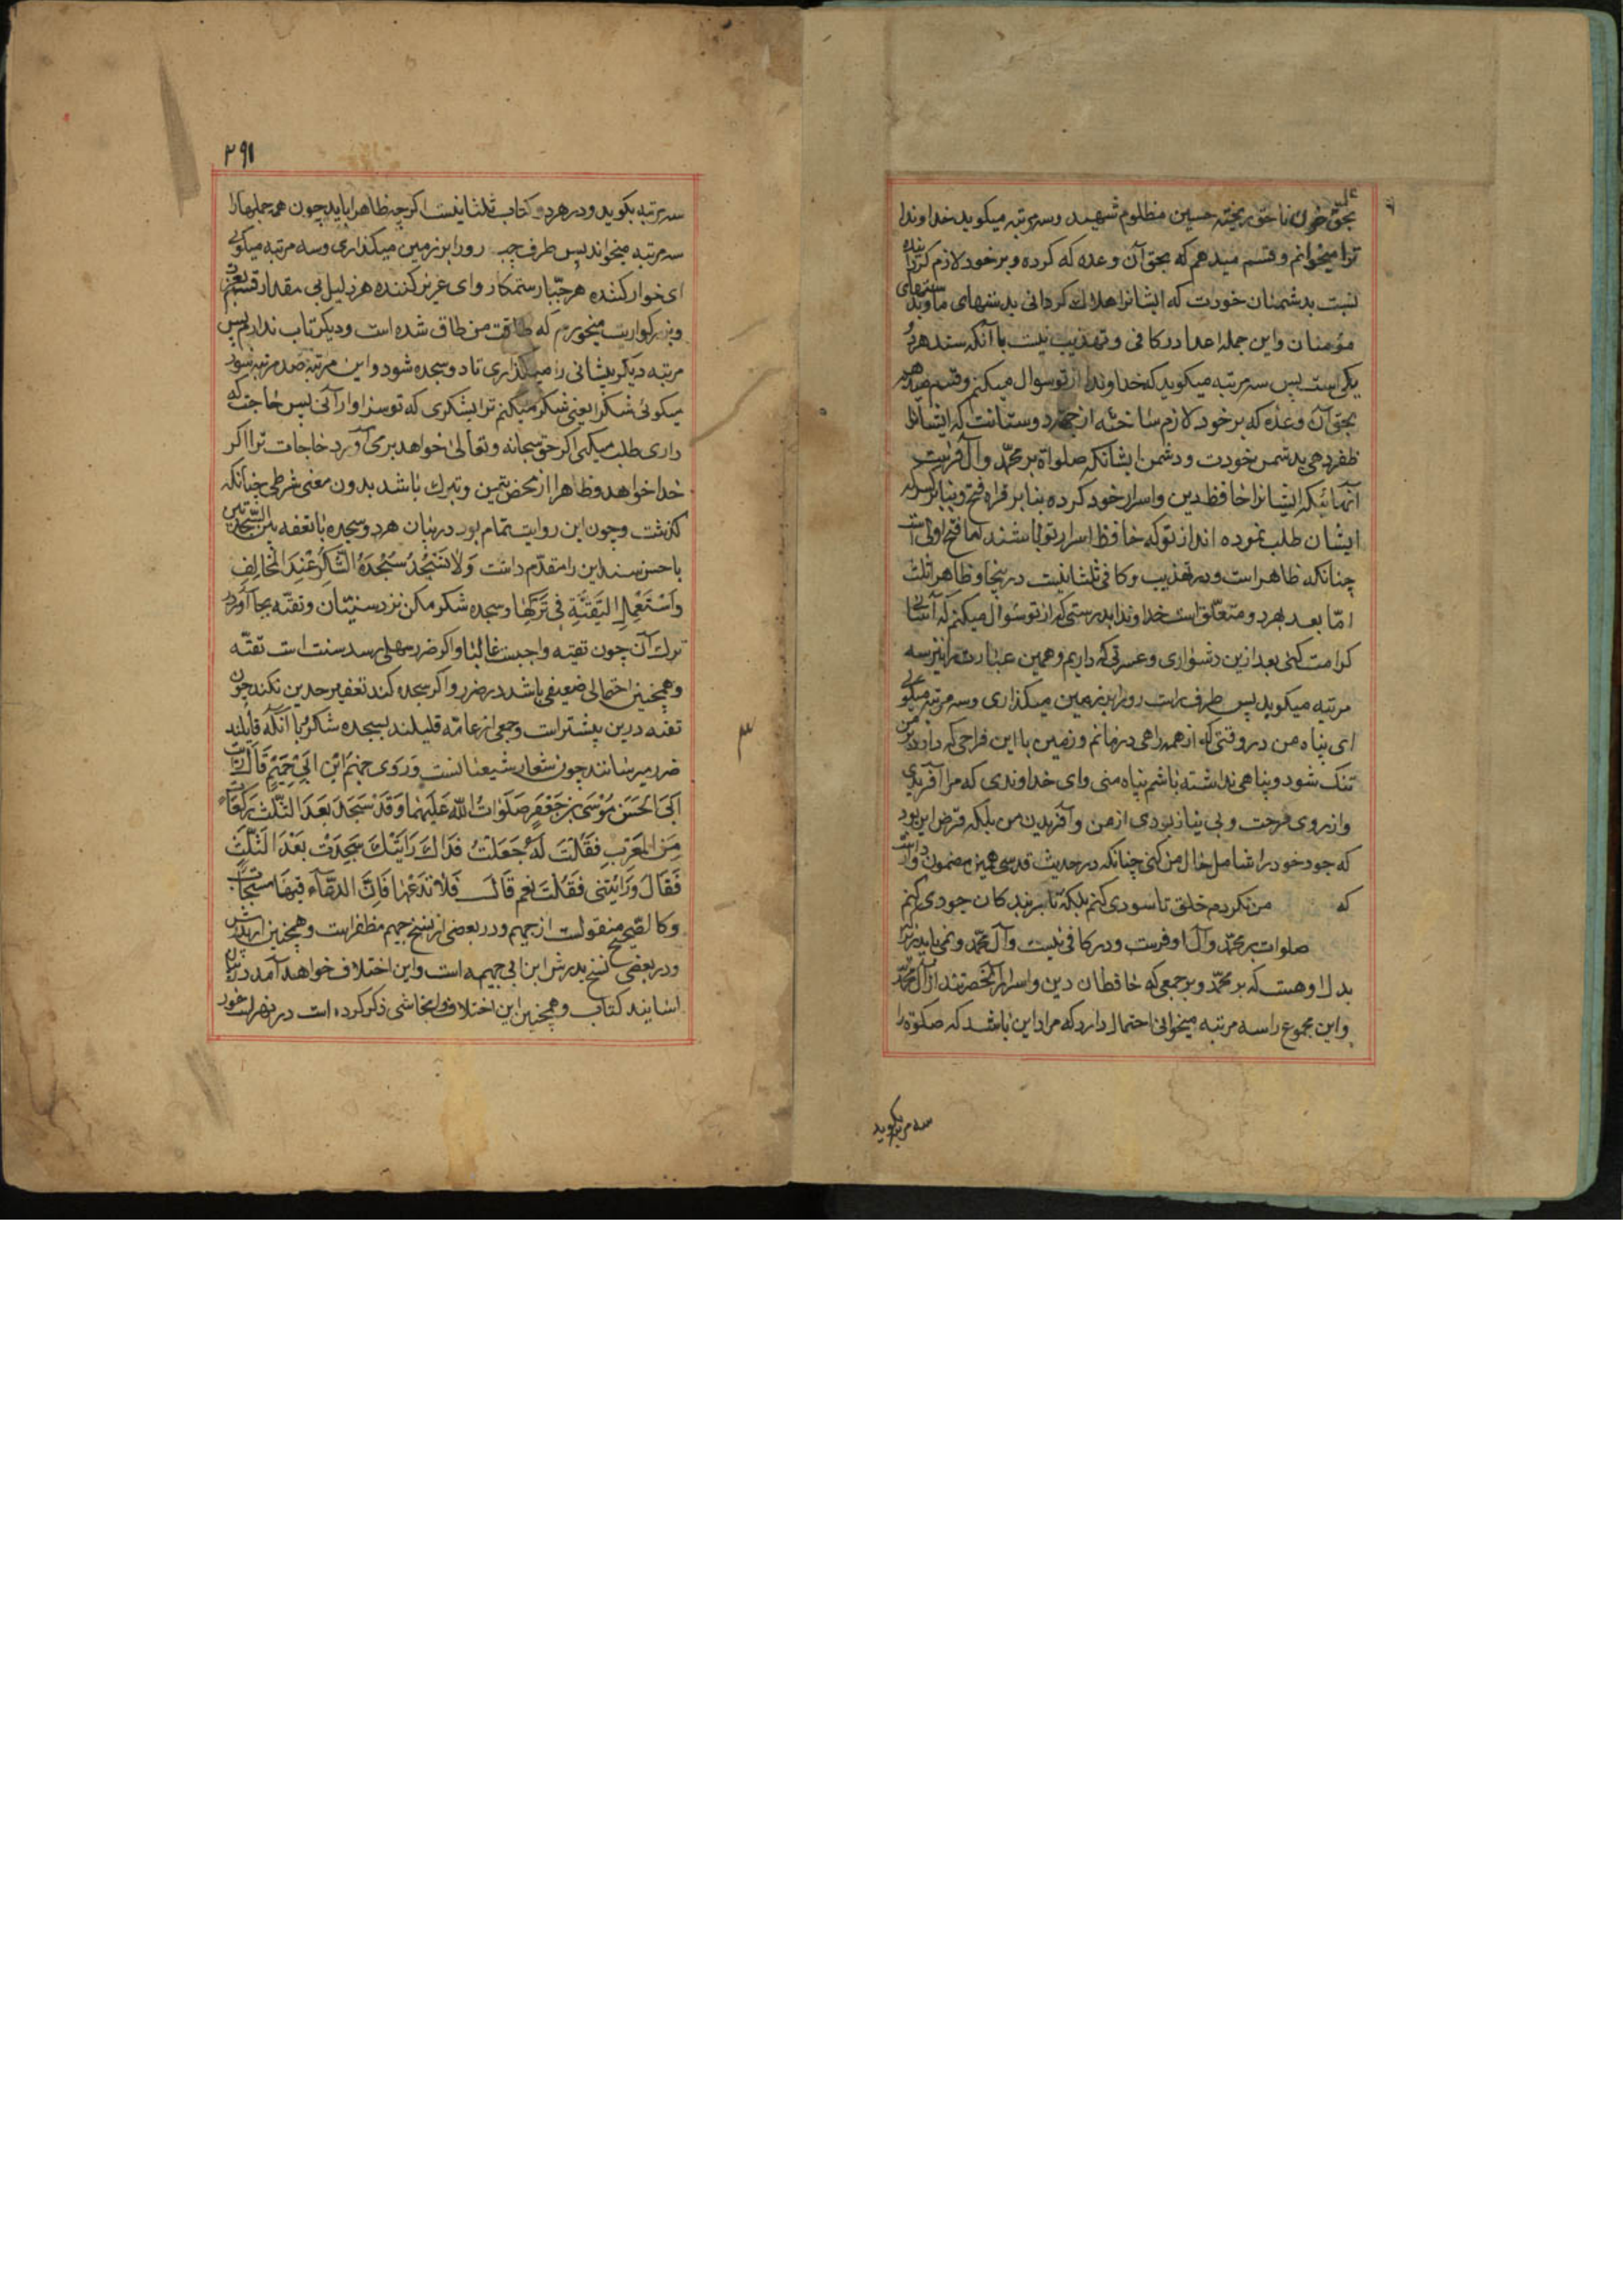 بحق خون ناحق ریخته حسین مظلوم شهید و سه مرتبه میکوید خداوندا
ترا میخوانم و قسم میدهم که بحق آن وعده که کرده و بر خود لازم کردانیده
نسبت بدشمنان خودت که ایشانرا هلاک کردانی بدستهای ما و بدستهای
مؤمنان و این جمله اعدا در کافی و تهذیب نیست با آنکه سند هر دو
یکی است پس سه مرتبه میکوید که خداوندا از تو سوال میکنم و قسم میدهم
بحق آن وعده که بر خود لازم ساخته از جهة دوستانت که ایشانرا
ظفر دهی بدشمن خودت و دشمن ایشانکه صلواة بر محمد و آل فرست
آنهائیکه ایشانرا حافظ دین و اسرار خود کرده بنابر قراه فتح و بنابر کسر که
ایشان طلب نموده اند از تو که حافظ اسرار تو باشند اما فتح اولی است
چنانکه ظاهر است و در تهذیب و کافی ثلثا نیست در اینجا و ظاهرا ثلث
اما بعد بهر دو متعلق است خداوندا بدرستی که از تو سوال میکنم که آسانی
کرامت کنی بعد ازین دشواری و عسرتی که داریم و همین عبارت را نیز سه
مرتبه میکوید پس طرف راست رو را بر زمین میکذاری و سه مرتبه میکوئی
ای پناه من در وقتی که از همه راهی درمانم و زمین با این فراخی که دارد بر من
تنک شود و پناهی نداشته باشم پناه منی و ای خداوندی که مرا آفریدی
و از روی مرحمت و بی نیاز بودی از من و آفریدن من بلکه غرض این بود
که جود خود را شامل حال من کنی چنانکه در حدیث قدسی همین مضمون وارد است
که من نکردم خلق تا سودی کنم بلکه تا بر بندکان جودی کنم
صلوات بر محمد و آل او فرست و در کافی نیست و آل محمد و نمی باید زیرا
بدل او هست که بر محمد و بر جمعی که حافظان دین و اسرار آنحضرتند از آل محمد
و این مجموع را سه مرتبه میخوانی احتمال دارد که مراد این باشد که صلوة را
سه مرتبه بکوید
۲۹۱
سه مرتبه بکوید و در هر دو کتاب ثلثا نیست اکرچه ظاهرا باید چون همه جملها را
سه مرتبه میخواند پس طرف چپ رو را بر زمین میکذاری و سه مرتبه میکوئی
ای خوار کننده هر جبار ستمکار و ای عزیز کننده هر ذلیل بی مقدار قسم بعزت
و بزرکواریت میخورم که طاقت من طاق شده است و دیکر تاب ندارم پس
مرتبه دیکر پیشانی را میکذاری تا دو سجده شود و این مرتبه صد مرتبه
میکوئی شکرا یعنی شکر میکنم ترا بشکری که تو سزاوار آنی پس حاجت که
داری طلب میکنی اکر حق سبحانه و تعالی خواهد بر می آورد حاجات ترا اکر
خدا خواهد و ظاهرا از محض تیمن و تبرک باشد بدون معنی شرطی چنانکه
کذشت و چون این روایت تمام بود در بیان هر دو سجده با تعفیر بین السجدتین
با حسن سند این را مقدم داشت وَلا تَسْجُدْ سُجْدَةَ الشُّكْرِ عِنْدَ الْمُخالِفِ
وَاسْتَعْمِلِ التَّقِيَّةَ فِي تَرْكِهَا و سجده شکر مکن نزد سنیان و تقیه بجا آور در
ترک آن چون تقیه واجبست غالبا و اکر ضرر سهلی رسد سنت است تقیه
و همچنین احتمالی ضعیفی باشد در ضرر و اکر سجده کند تعفیر خدین نکند چون
تقیه درین بیشتر است و جمعی از عامه قلیلند بسجده شکر با آنکه قایلند
ضرر میرسانند چون شعار شیعیانست وَرَوى جَهْمُ ابْنُ اَبي جَهْمٍ قَالَ رَاَيْتُ
اَبَي الْحَسَنِ مُوْسَى بْنِ جَعْفَرٍ صَلَوَاتُ اللّٰهِ عَلَيْهِمَا وَقَدْ سَجَدَ بَعْدَ الثَّلٰثِ رَكَعَاتٍ
مِنَ الْمَغْرِبِ فَقُلْتُ لَهُ جُعِلْتُ فِدَاكَ رَاَيْتُكَ سَجَدْتَ بَعْدَ الثَّلٰثِ
فَقَالَ وَرَاَيْتَنِي فَقُلْتُ نَعَمْ قَالَ فَلَا تَدَعْهَا فَاِنَّ الدُّعَاءَ فِيهَا مُسْتَجَابٌ
و کالصحیح منقولست از جهیم و در بعضی از نسخ جهم مظفر است و همچنین از پدرش
و در بعضی نسخ پدرش ابن ابی جهیمه است و این اختلاف خواهد آمد در بیان
اسانید کتاب و همچنین این اختلاف را نجاشی ذکر کرده است در فهرست خود